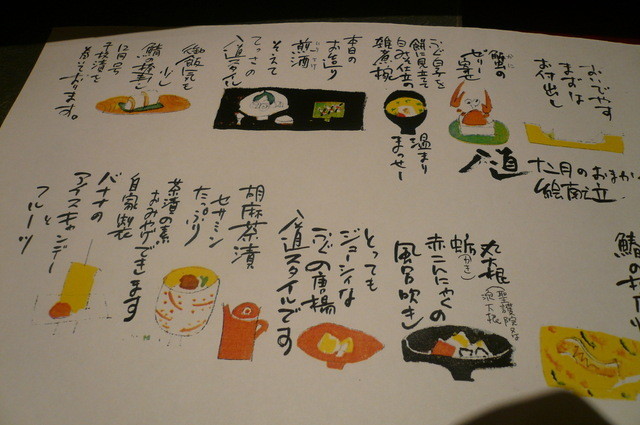 八直
十二月のおまか
絵献立
おいでやす
まずは
お付出し
蟹の
ゼリー寄せ
うぐ白子を
餅に見立て
白みそ仕立の
雑煮椀
温まり
まっせー
本日の
お造り
煎酒
そえて
てっさの
八直スタイル
御飯でも
少し
鯖棒寿し
12月号
千枚漬を
巻いております。
鯖の
丸大根
(聖護院
大根)
蛎(かき)
赤こんにゃくの
風呂吹き
とっても
ジューシィな
ふぐの唐揚
八直スタイルです
胡麻茶漬
セサミン
たっぷり
茶漬の素
おみやげできます
自家製
バナナの
アイスキャンデー
と
フルーツ